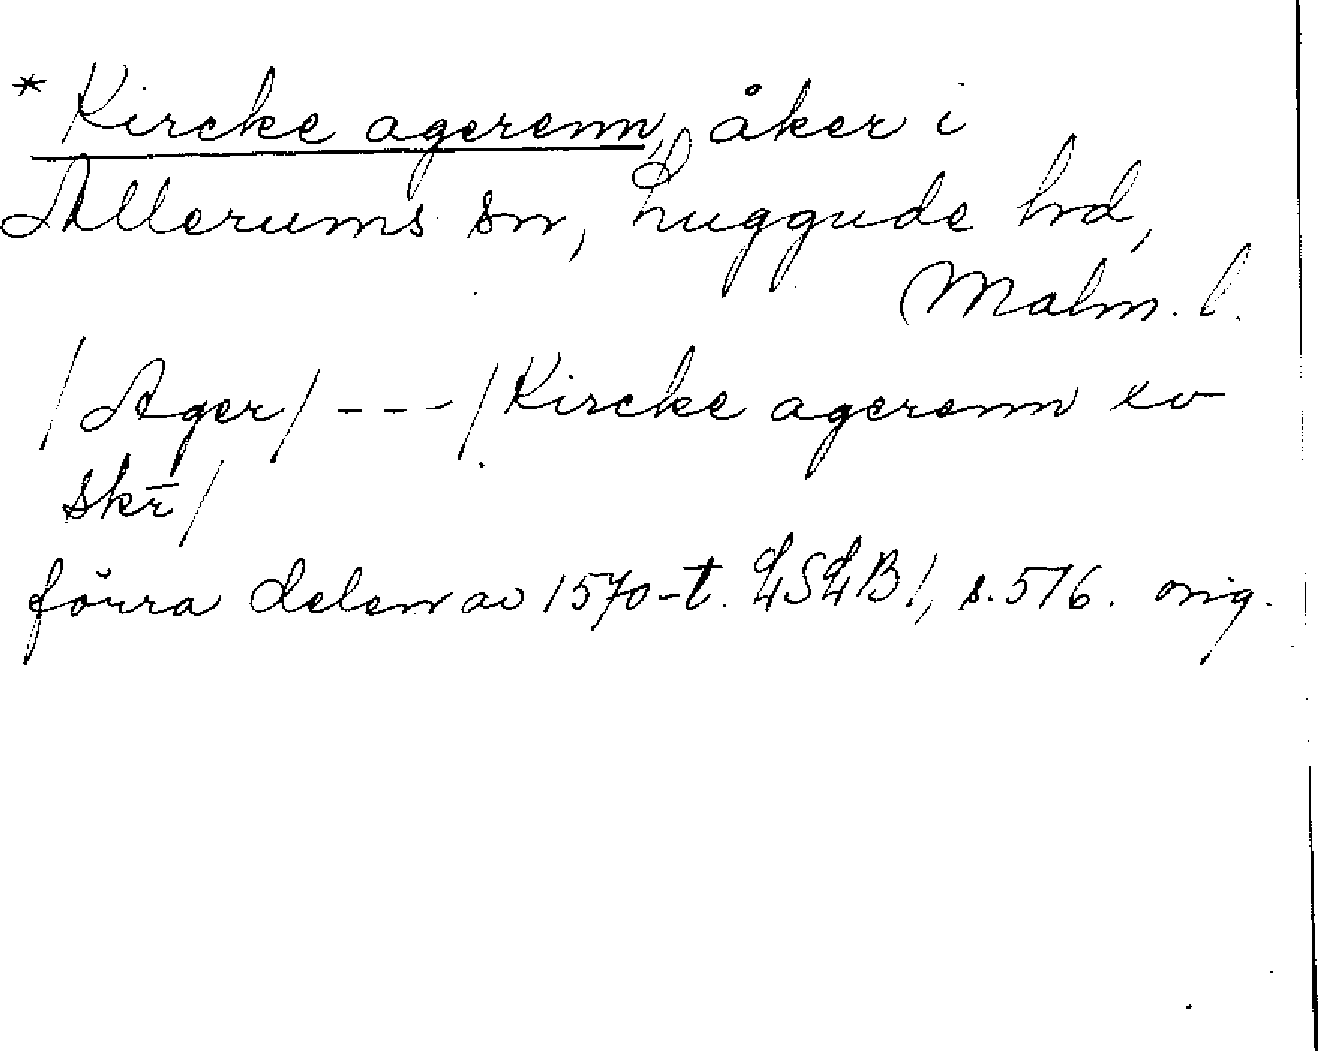 * Kircke agerenn, åker i
Allerums sn, Luggude hd,
Malm. l.
/Ager/ --- /Kircke agerenn ev
skr̄/
förra delen av 1570-t. LSLB1, s.576. orig.